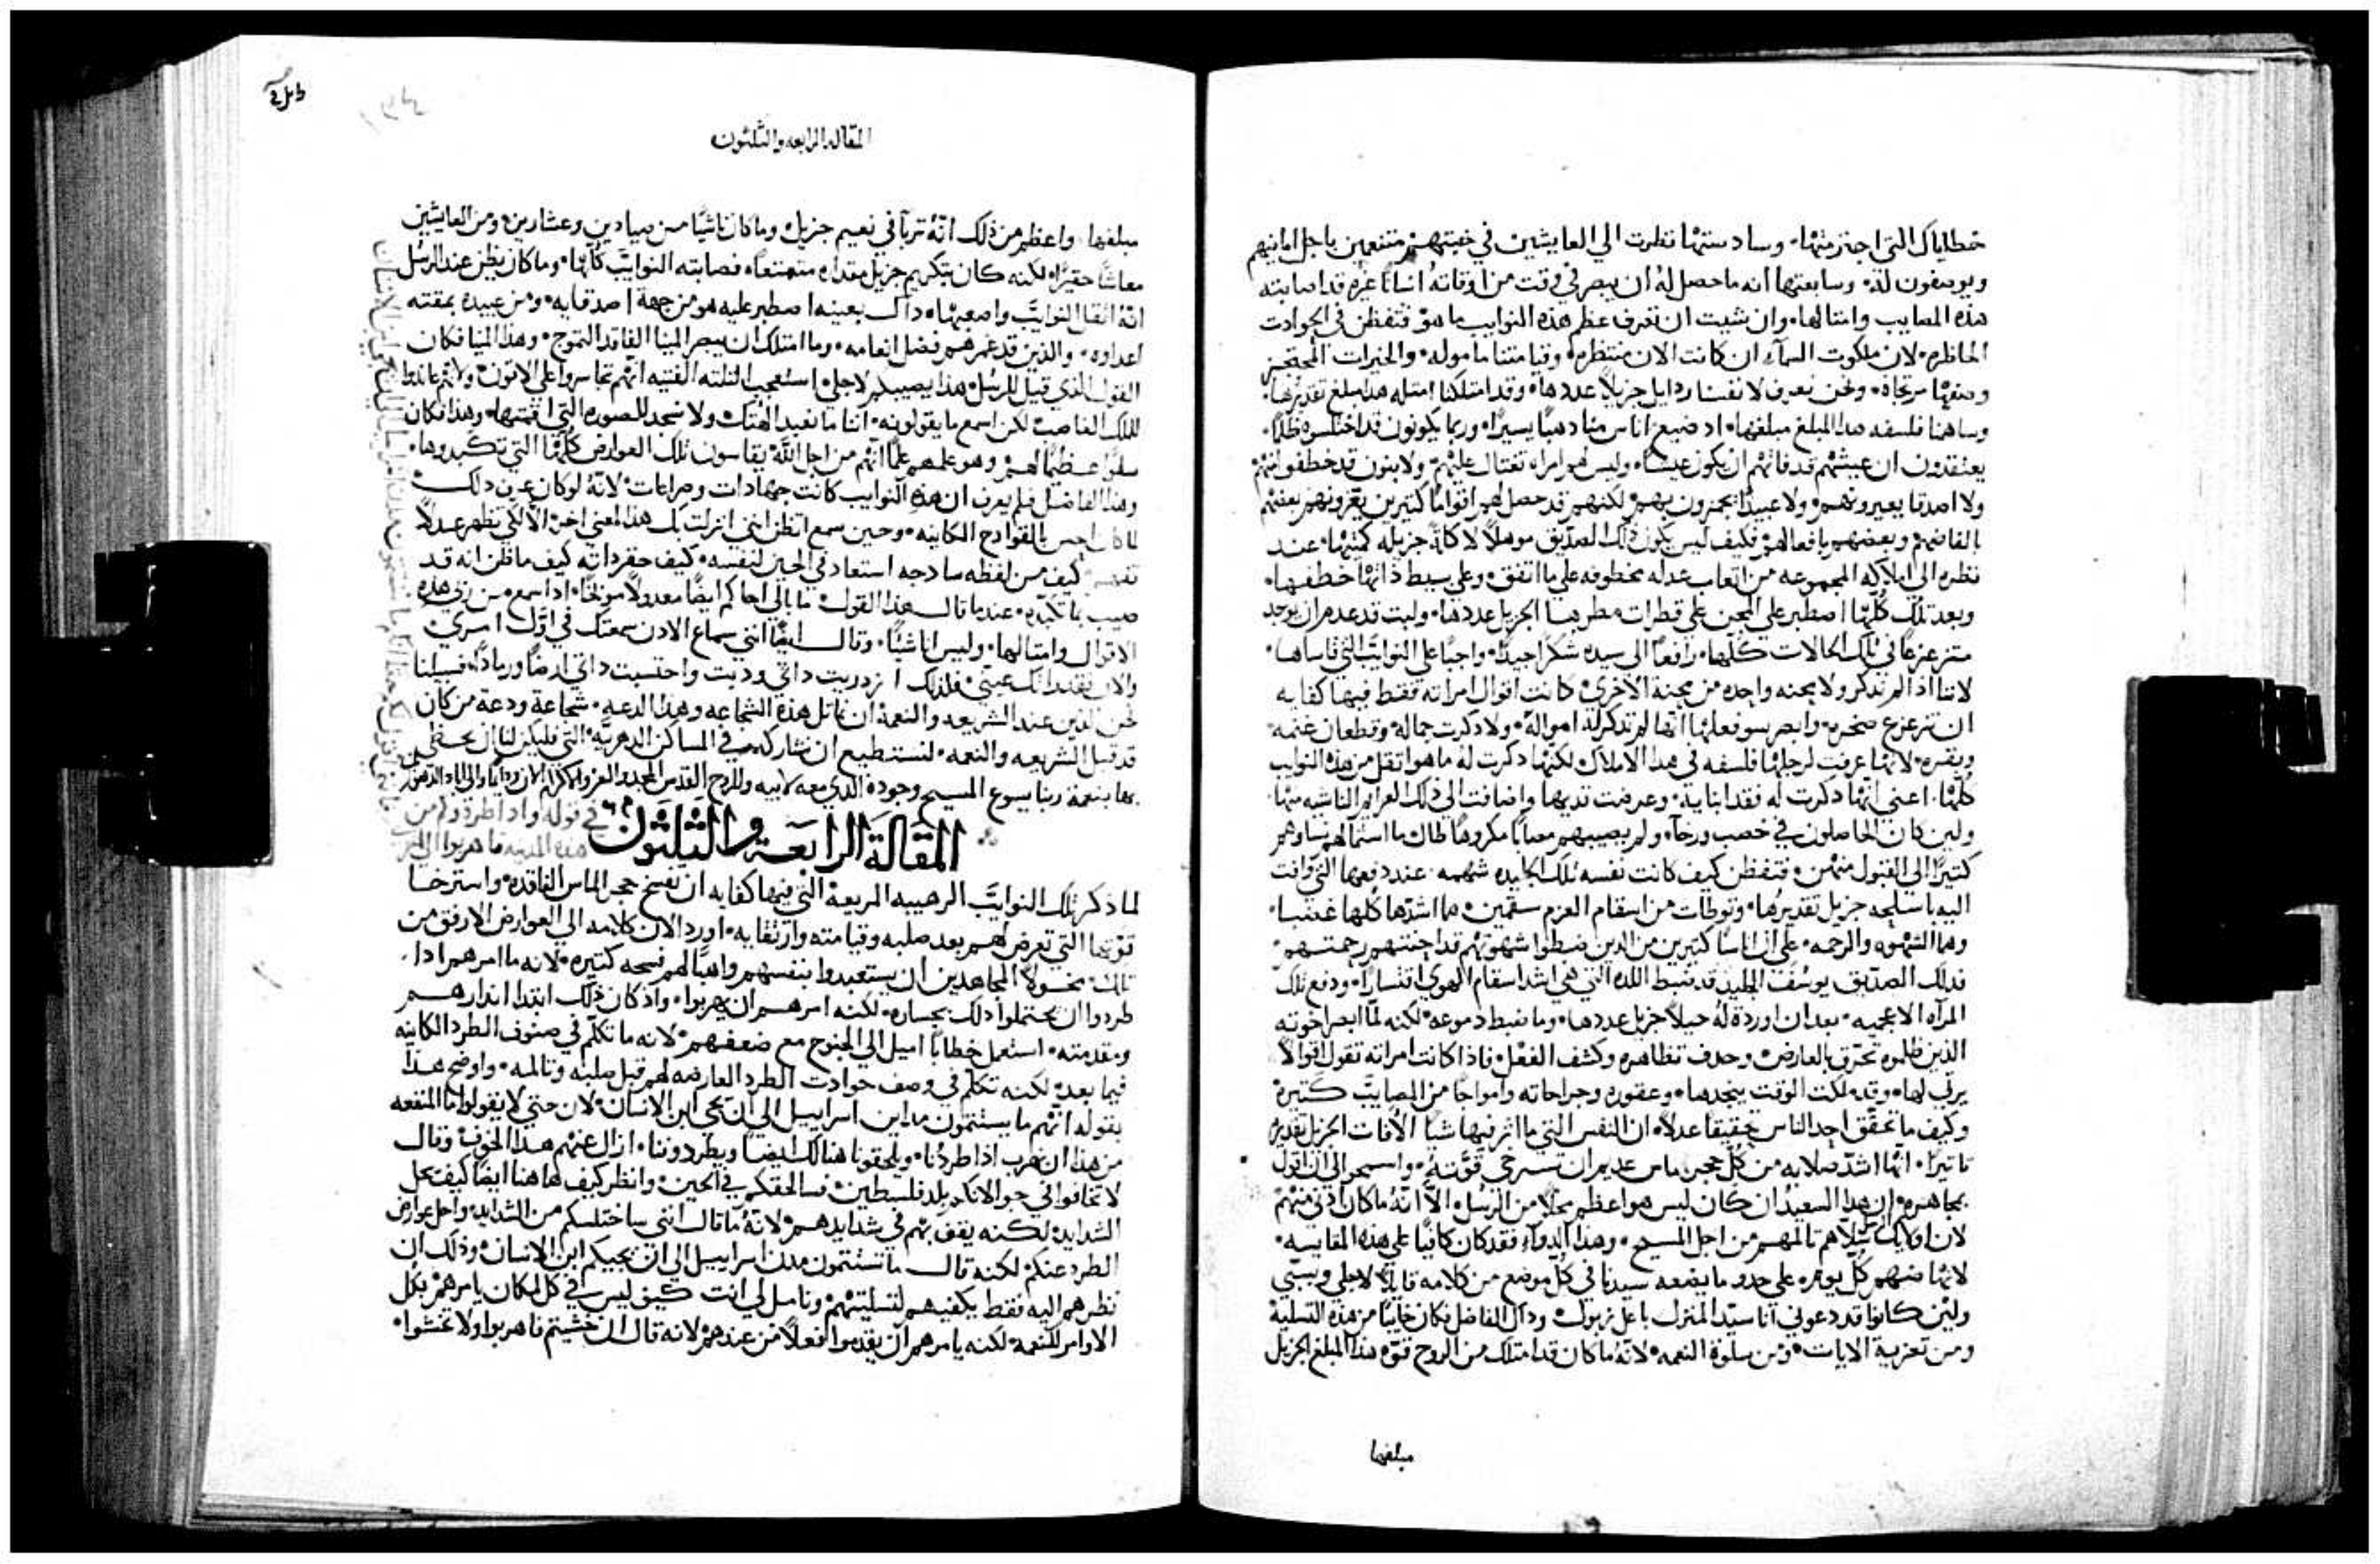 خطاياك التى اجترمتها، وسادستها نظرت الي العايشين في خيبتهم متنعمين باجل امانيهم
ويوصفون لذة، وسابعتها انه ما حصل له ان يبصر في وقت من اوقاته انسانا غيره قد اصابته
هذه المصايب وامثالها، وان شيت ان تعرف عظم هذه النوايب ما هو فتفطن في الحوادث
الحاظره، لان ملكوت السمآء ان كانت الان منتظره وقيامتنا ماموله، والخيرات المحتجز
وصفها مرتجاة، ونحن نعرف لانفسنا ردايل جزيلا عددها، وقد امتلكنا امثله هذا مبلغ تقديرها،
وساهمنا فلسفه هذا المبلغ مبلغها، اد ضيع اناس منا دهبا يسيرا، وربما يكونون قد اختلسوه ظلما،
يعتقدون ان عيشهم قد فاتهم ان يكون عيشا، وليس لهم امراه تغتال عليهم، ولا بنون قد خطفوا منهم
ولا اصدقا يعيرونهم، ولا عبيدا يجمزون بهم، لكنهم قد حصل لهم اقواما كثيرين يعزونهم بعضهم
بالفاظهم وبعضهم بافعالهم، فكيف ليس يكون ذلك الصديق موهلا لاكلة جزيله كميتها، عند
نظره الى املاكه المجموعه من اتعاب عدله مخطوفه على ما اتفق، وعلى بسيط ذاتها خطفها،
وبعد تلك كلها اصطبر على المحن على قطرات مطرها الجزيل عددها، ولبث قد عدم ان يوجد
متزعزعا في تلك الحالات كلها، رافعا الى سيده شكرا جيدا، واجبا على النوايب التي قاساها،
لاننا اذا لم تدكر ولا محنه واحده من محنة الاخرى، كانت اقوال امراته فقط فيها كفايه
ان تزعزع صخره، وابصر سو فعلها انها لم تدكر له امواله، ولا دكرت جماله وقطعان غنمه
وبقره، لانها عرفت لرجلها فلسفه في هدا الاملاك، لكنها دكرت له ما هو اثقل من هذه النوايب
كلها، اعني انها دكرت له فقد ابنايه، وعرضت تديها واضافت الى ذلك العزايم الناشيه منها،
ولين كان الحاصلون في خصب ورخآء، ولم يصيبهم مصابا مكروها طال ما استمالهم نساوهم
كثيرا الى القبول منهن، فتفطن كيف كانت نفسه تلك الجليده شهمه، عند دفعها التي وافت
اليه باسلحه جزيل تقديرها، وتوطات من اسقام العزم سقمين، ما اشدها كلها غصبا،
وهما الشهوه والرحمه، على ان اناسا كثيرين من الدين ضبطوا شهوتهم قد احنتهم رحمتهم،
فدلك الصديق يوسف الجليد قد ضبط اللده التي هي اشد اسقام الهوى اقتسارا، ودفع تلك
المرآه الاعجميه، بعد ان اوردة له حيلا جزيل عددها، وما ضبط دموعه، لكنه لما ابصر اخوته
الذين ظلموه تحرق بالعارض وحدف تظاهره وكشف الفعل، فاذا كانت امراته تقول اقوالا
يرثى لها، وقد ملكت الوقت ينجدها، وعقوره وجراحاته وامواجا من المصايب كثيره
وكيف ما تحقق احد الناس تحقيقا عدلا، ان النفس التي ما اثر فيها شيا الافات الجزيل تقديرها
تاثيرا، انها اشد صلابه من كل حجر ماس عديم ان تسترخي قوته، واسمحوا لي ان اقول
بمجاهره، ان هذا السعيد ان كان ليس هو اعظم محلا من الرسل، الا انه ما كان ادنى منهم
لان اوليك سلاهم تالمهم من اجل المسيح، وهدا الدوآء فقد كان كافيا على هذه المقايسه،
لانها ضنهم كل يوم على حدو ما يضعه سيدنا في كل موضع من كلامه قايلا لاجلي وبسببي
ولين كانوا قد دعوني انا سيد المنزل باعل زبول، وداك الفاضل فكان خايبا من هذه التسليه
ومن تعزية الايات، ومن سلوة النعمه، لانه ما كان قد امتلك من الروح قوه هذا المبلغ الجزيل
مبلغها
المقاله الرابعه والثلثون
١٣٤
مبلغها، واعظم من ذلك انه تربا في نعيم جزيل، وما كان ناشيا من صيادين وعشارين، ومن العايشين
معاشا حقيرا، لكنه كان بتكريم جزيل مقداره متمتعا، فصابته النوايب كلها، وما كان يظن عند الرسل
انه اثقل النوايب واصعبها، داك بعينه اصطبر عليه هو من جهة اصدقايه، ومن عبيده بمقته
اعداوه، والذين قد غمرهم فضل انعامه، وما امتلك ان يبصر المينا الفاقد التموج، وهذا المينا فكان
القول الذي قيل للرسل هذا يصيبكم لاجلي، استعجب الثلثه الفتيه انهم تجاسروا على الاتون، ولانهم عاندوا
للملك الغاصب، لكن اسمع ما يقولونه، اننا ما نعبد الهتك ولا نسجد للصوره التى اقمتها، وهذا فكان
سلوا عظيما لهم، وهو علمهم علما انهم من اجل الله يقاسون تلك العوارض كلها التي تكبدوها،
وهذا الفاضل فلم يعرف ان هذه النوايب كانت جهادات وصراعات، لانه لو كان عرف دلك
لما كان احس بالقوادح الكاينه، وحين سمع اتظن انني انزلت بك هذا لمعنى اخر الا لكي تظهر عدلا
تفهم كيف من لفظه سادجه استعاد في الحين لنفسه، كيف حقر داته كيف ما ظن انه قد
صيب بما تكبده، عندما قال هذا القول، ما بالي احاكم ايضا معدولا موبخا، اذا اسمع من ربي هذه
الاقوال وامثالها، وليس انا شيا، وقال ايضا انني سماع الادن سمعتك في اول امري
والان فقد راتك عيني، فلذلك ازدريت داتي ودبت واحتسبت داتي ارضا ورمادا، فسبيلنا
نحن الذين عند الشريعه والنعمة ان نماثل هذه الشجاعه وهذا الدعه، شجاعة ودعة من كان
قد قبل الشريعه والنعمه، لنستطيع ان نشاركه في المساكن الدهريه، التي فليكن لنا ان نحظى
بها بنعمة ربنا يسوع المسيح وجوده الذي معه لابيه وللروح القدس المجد والعز والاكرام الان ودايما والى اباد الدهور
المقالة الرابعة والثلثون
في قوله واد اطردوكم من
هذه المدينه فاهربوا الى
لما ذكر تلك النوايب الرهيبه المريعة التي فيها كفايه ان تفسخ حجر الماس الفاقده واسترخا
قوتها التي تعرض لهم بعد صلبه وقيامته وارتقايه، اورد الان كلامه الى العوارض الارفق من
تلك، مخولا المجاهدين ان يستعيدوا بنفسهم واهبا لهم فسحه كثيره، لانه ما امرهم ادا
طردوا ان يحتملوا دلك بجساره، لكنه امرهم ان يهربوا، واذ كان ذلك ابتدا اندارهم
ومقدمته، استعمل خطابا اميل الى الجنوح مع ضعفهم، لانه ما تكلم في صنوف الطرد الكاينه
فيما بعد، لكنه تكلم في وصف حوادث الطرد العارضه لهم قبل صلبه وتالمه، واوضح هذا
بقوله انهم ما يستتمون مداين اسراييل الى ان يجي ابن الانسان، لان حتى لا يقولوا ما المنفعه
من هذا ان نهرب اذا طردنا، ويلحقونا هنالك ايضا ويطردوننا، ازال عنهم هذا الخوف، وقال
لا تخافوا في جولانكم بلد فلسطين، فسالحقكم في الحين، وانظر كيف هاهنا ايضا كيف يحل
الشدايد، لكنه يقف بهم في شدايدهم، لانه ما قال انني ساختلسكم من الشدايد، واحل عوارض
الطرد عنكم، لكنه قال ما تستتمون مدن اسراييل الى ان يجيكم ابن الانسان، وذلك ان
نظرهم اليه فقط يكفيهم لتسليتهم، وتامل لي انت كيف ليس في كل مكان يامرهم بكل
الاوامر للنعمه، لكنه يامرهم ان يقدموا فعلا من عندهم، لانه قال ان خشيتم فاهربوا ولا تخشوا،